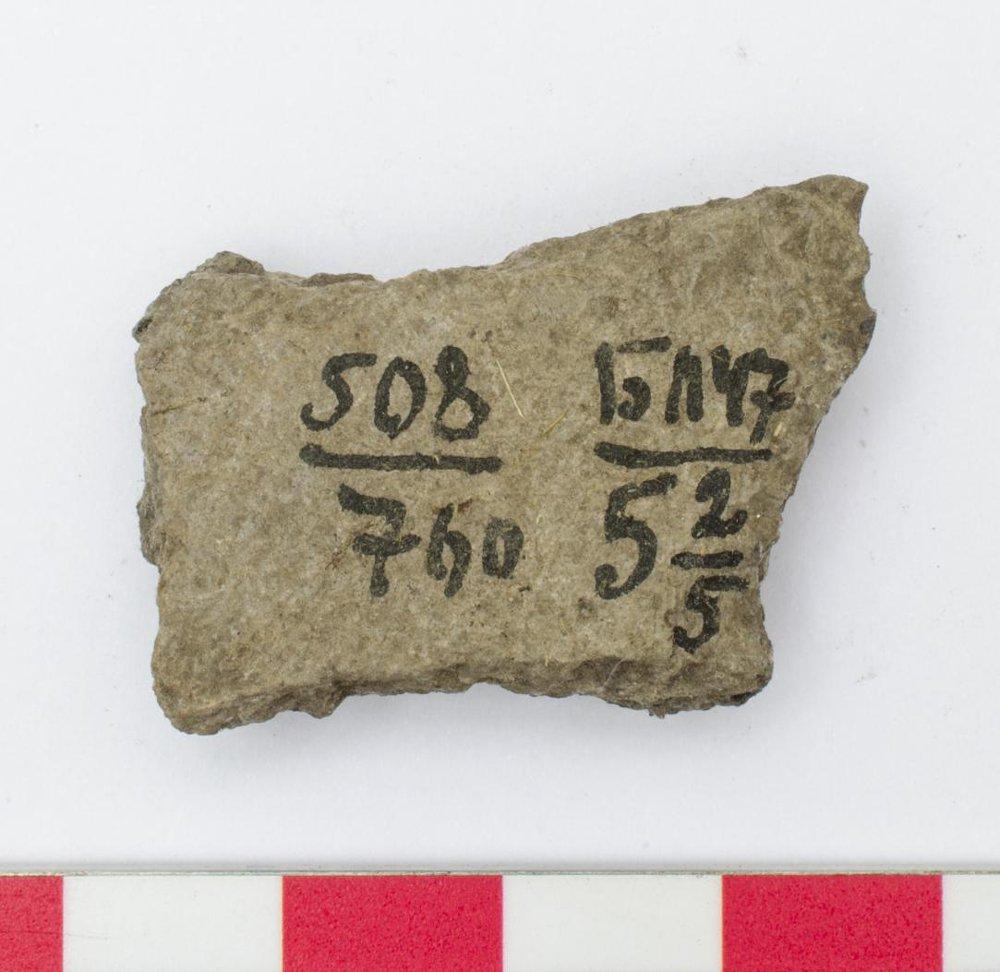 508
760
БЛ47
5 2/5